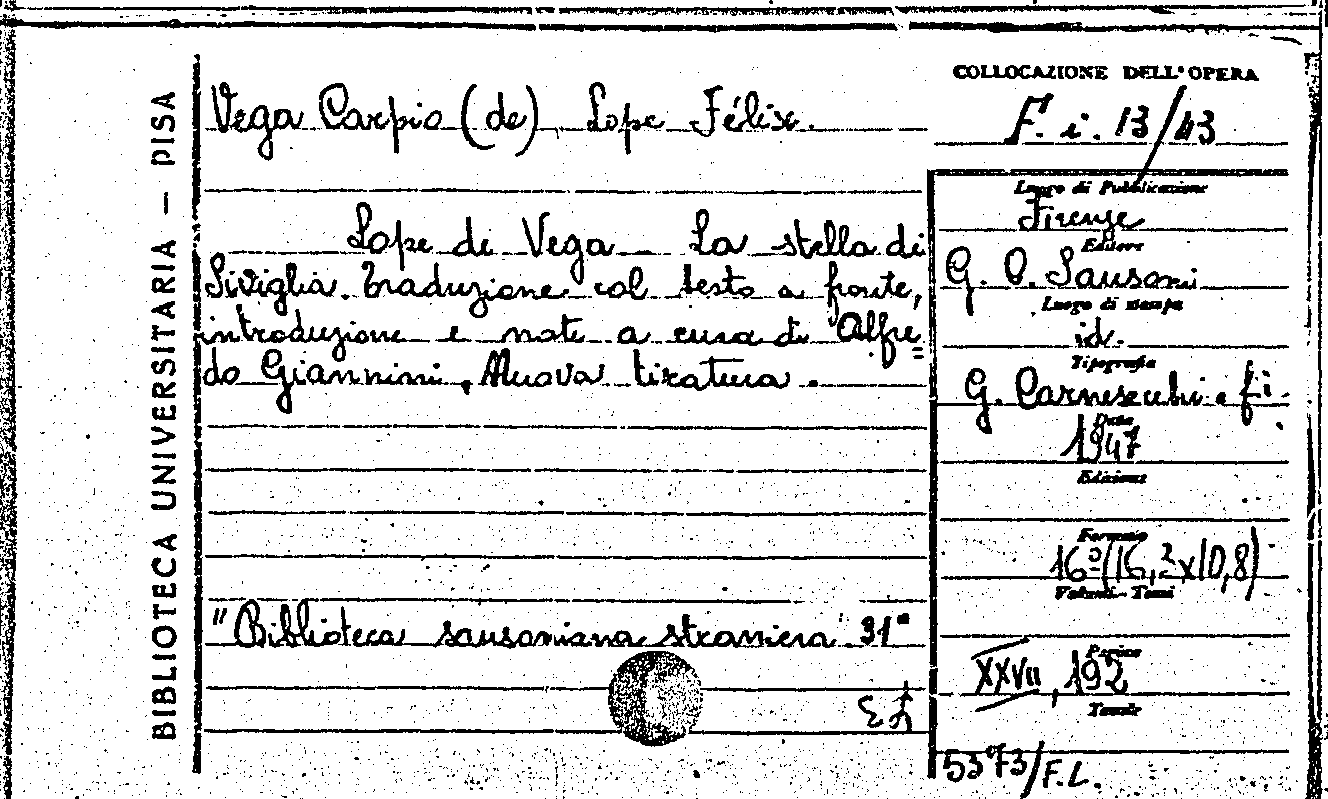 BIBLIOTECA UNIVERSITARIA — PISA
Vega Carpio (de) Lope Félix.
Lope de Vega La stella di
Siviglia. Traduzione col testo a fronte,
introduzione e note a cura di Alfre=
do Giannini, Nuova tiratura.
"Biblioteca sansoniana straniera 31"
COLLOCAZIONE DELL'OPERA
F. i. 13/43
Luogo di Pubblicazione
Firenze
Editore
G. C. Sansoni
Luogo di stampa
id.
Tipografia
G. Carnesecchi e fi.
Data
1947
Edizione
Formato
16º (16,2x10,8)
Volumi - Tomi
Pagine
XXVII, 192
Tavole
5373/F.L.